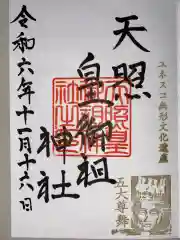 ユネスコ無形文化遺産
天照
皇御祖
神社
令和六年十一月十六日
五大尊舞